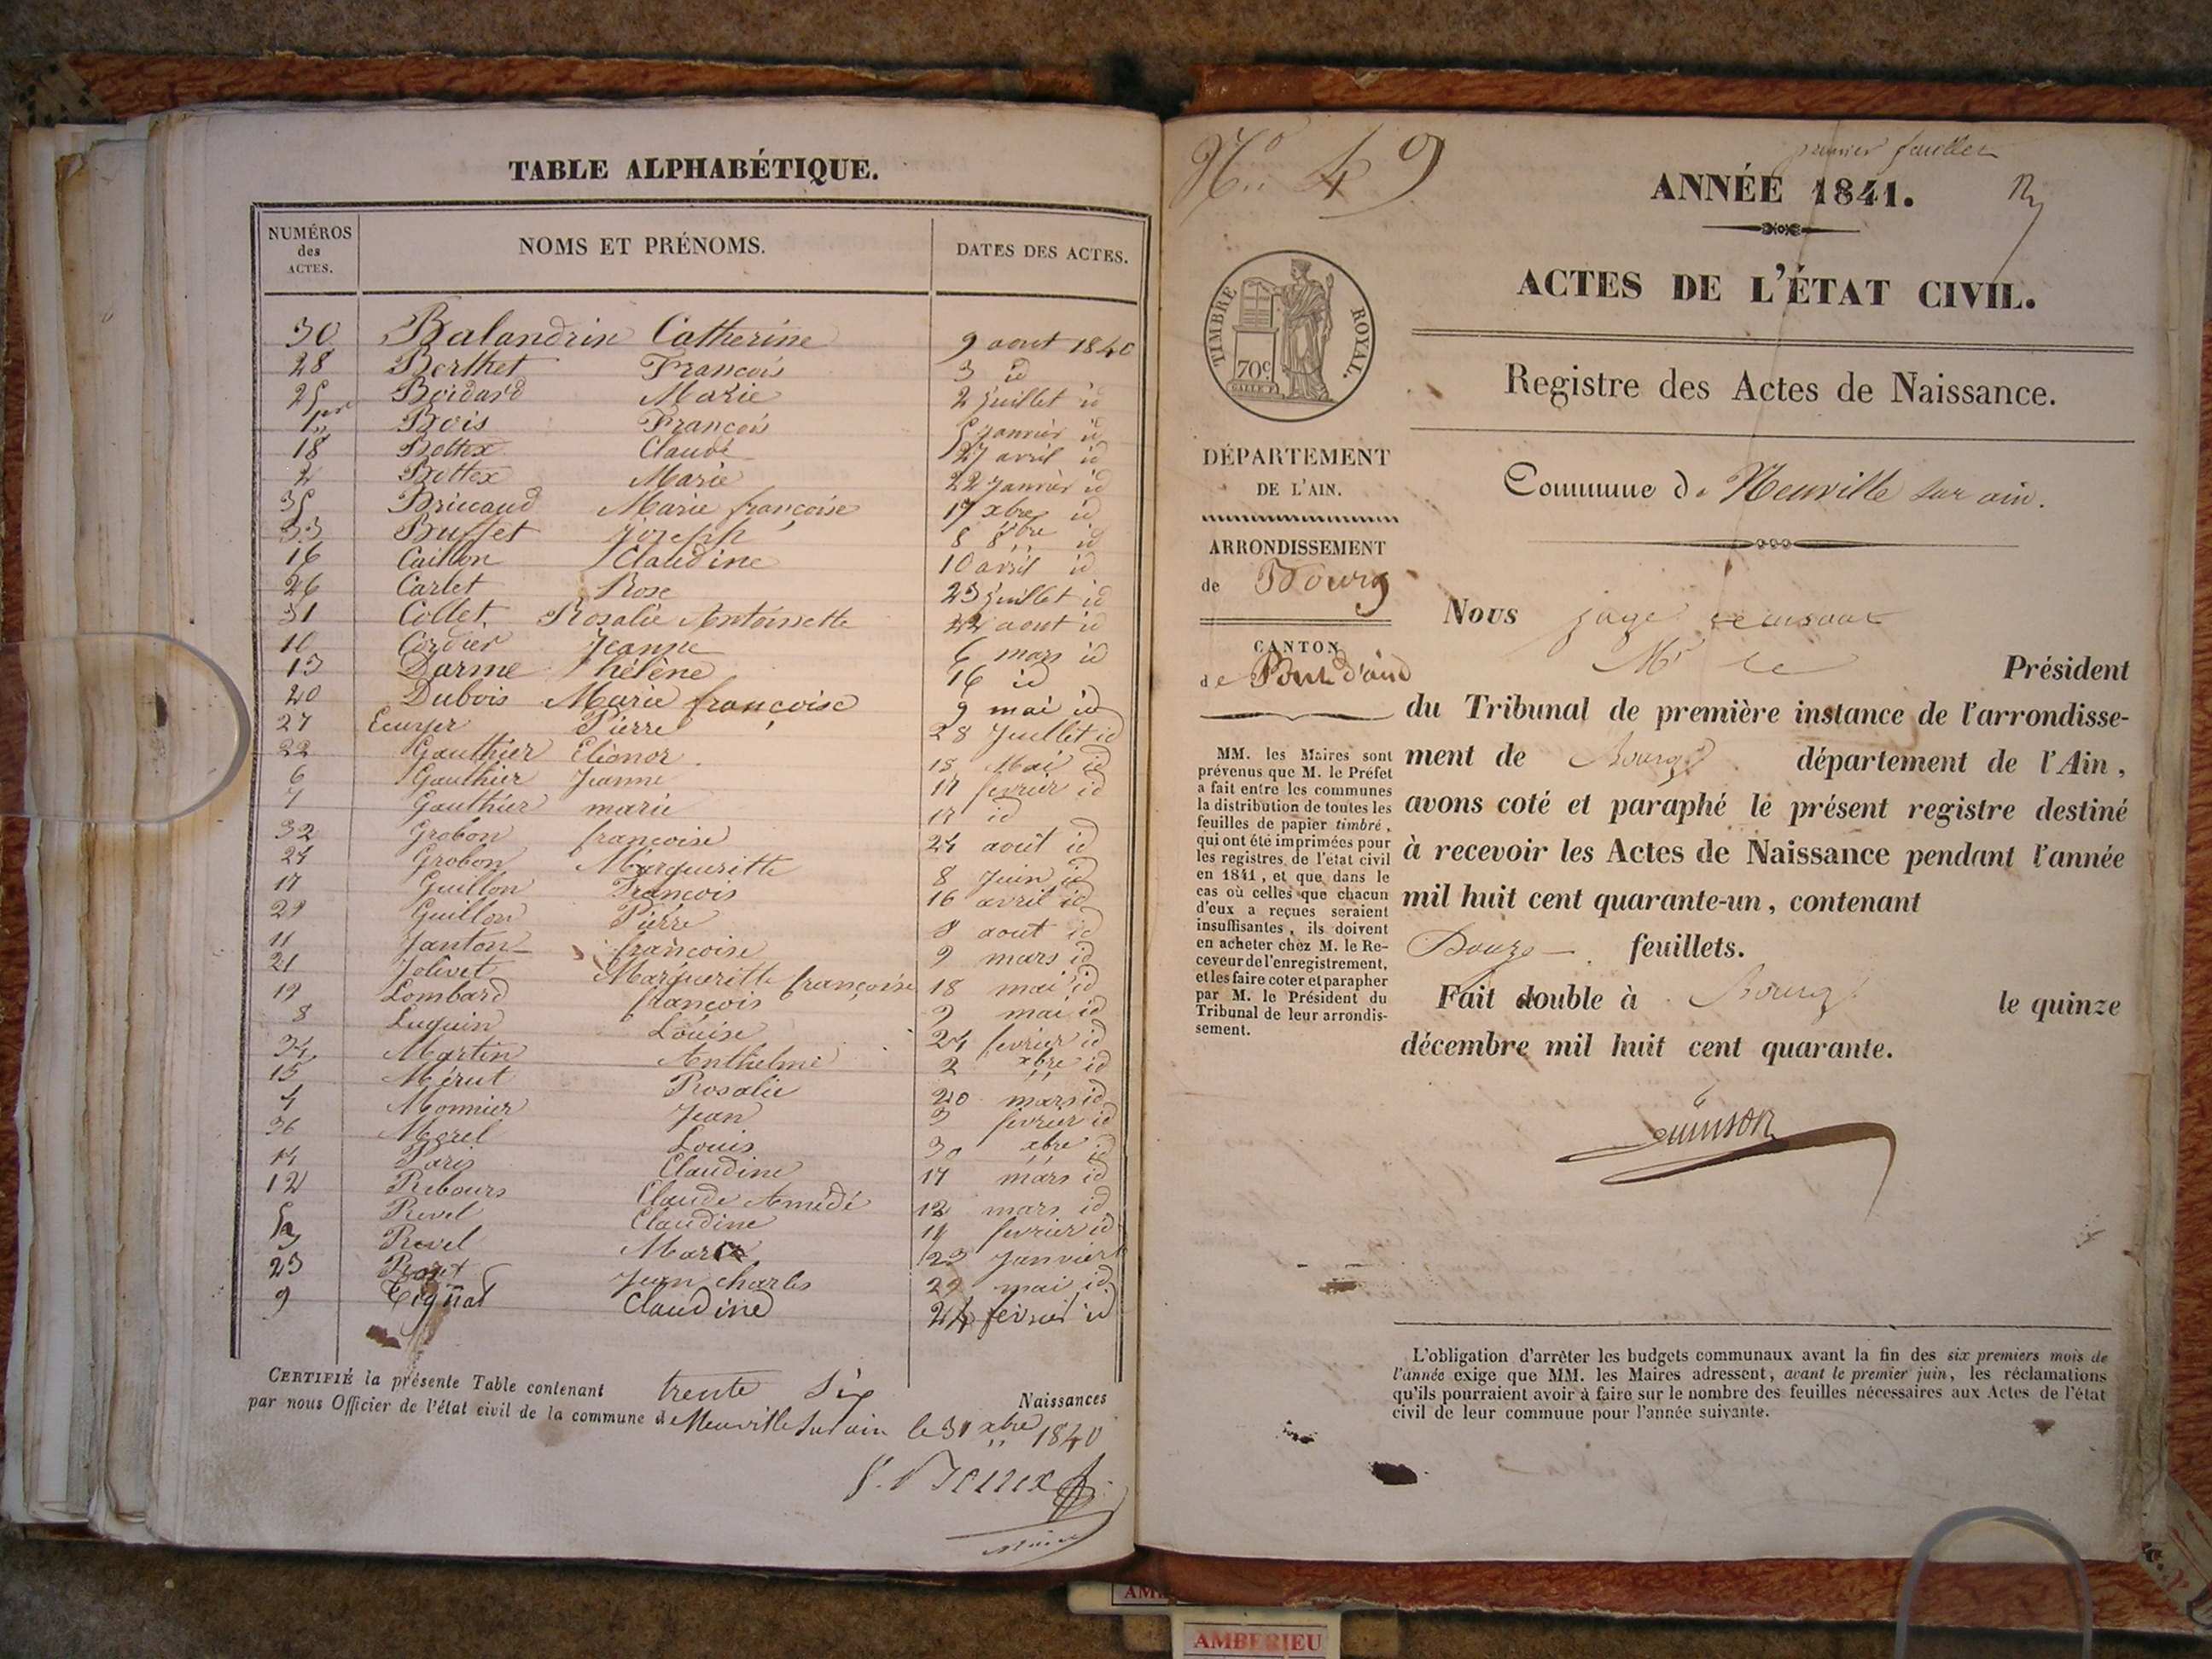 TABLE ALPHABÉTIQUE.
NUMÉROS des ACTES. NOMS ET PRÉNOMS. DATES DES ACTES.
30 Balandrin Catherine 9 aout 1840
28 Berthet François 3 id
25 Boidard Marie 2 juillet id
1er Bois François 5 janvier id
18 Bottex Claude 27 avril id
2 Bottex Marie 22 janvier id
35 Briccaud Marie françoise 17 xbre id
33 Buffet Joseph 8 8bre id
16 Caillon Claudine 10 avril id
26 Carlet Rose 23 juillet id
31 Collet Rosalie Antoinette 22 aout id
10 Cordier Jeanne 6 mars id
13 Darme hélène 16 id
20 Dubois Marie françoise 9 mai id
27 Ecuyer Pierre 28 Juillet id
22 Gauthier Elionor 18 Mai id
6 Gauthier Jeanne 17 fevrier id
7 Gauthier marie 17 id
32 Grobon françoise 24 août id
24 Grobon Margueritte 8 Juin id
17 Guillon François 16 avril id
29 Guillon Pierre 8 aout id
11 Janton françoise 9 mars id
21 Jolivet Margueritte françoise 18 mai id
19 Lombard françois 9 mai id
8 Luquin Louise 24 fevrier id
34 Martin Anthelme 2 xbre id
15 Mérut Rosalie 20 mars id
4 Monnier Jean 3 fevrier id
36 Morel Louis 30 xbre id
14 Paris Claudine 17 mars id
12 Rebours Claude Amédé 12 mars id
5 Revel Claudine 11 fevrier id
3 Revel Marie 23 Janvier
23 Jean charles 29 mai id
9 Tignat Claudine 24 fevrier id
CERTIFIÉ la présente Table contenant trente Six Naissances
par nous Officier de l'état civil de la commune de Neuville sur ain le 31 xbre 1840
Maire
No 49
premier feuillet
ANNÉE 1841.
ACTES DE L'ÉTAT CIVIL.
Registre des Actes de Naissance.
Commune de Neuville sur ain.
TIMBRE ROYAL.
70c
DÉPARTEMENT
DE L'AIN.
ARRONDISSEMENT
de Bourg
CANTON
de Pont d'ain
MM. les Maires sont
prévenus que M. le Préfet
a fait entre les communes
la distribution de toutes les
feuilles de papier timbré,
qui ont été imprimées pour
les registres de l'état civil
en 1841, et que dans le
cas où celles que chacun
d'eux a reçues seraient
insuffisantes, ils doivent
en acheter chez M. le Re-
ceveur de l'enregistrement,
et les faire coter et parapher
par M. le Président du
Tribunal de leur arrondis-
sement.
Nous juge
Mr le Président
du Tribunal de première instance de l'arrondisse-
ment de Bourg département de l'Ain,
avons coté et paraphé le présent registre destiné
à recevoir les Actes de Naissance pendant l'année
mil huit cent quarante-un, contenant
Douze feuillets.
Fait double à Bourg le quinze
décembre mil huit cent quarante.
L'obligation d'arrêter les budgets communaux avant la fin des six premiers mois de
l'année exige que MM. les Maires adressent, avant le premier juin, les réclamations
qu'ils pourraient avoir à faire sur le nombre des feuilles nécessaires aux Actes de l'état
civil de leur commune pour l'année suivante.
AMBERIEU